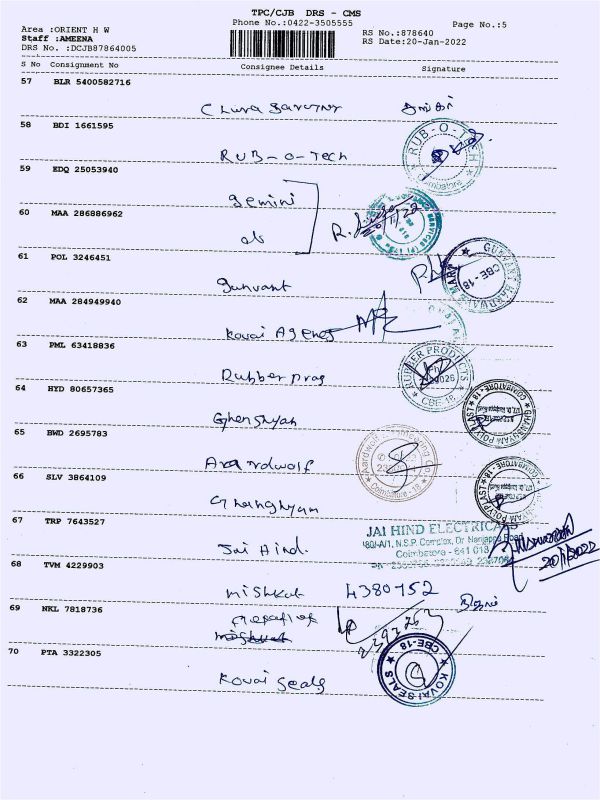 TPC/CJB DRS - CMS
Area :ORIENT H W
Phone No.:0422-3505555
Page No.:5
Staff :AMEENA
RS No.:878640
DRS No. :DCJB87864005
RS Date:20-Jan-2022
S No Consignment No Consignee Details Signature
57 BLR 5400582716
58 BDI 1661595
RUB-O-Tech
RUB-O-TECH
Coimbatore
59 EDQ 25053940
Gemini
60 MAA 286886962
do
61 POL 3246451
Gunvant
GUNVANT HARDWARE MART
CBE-18
62 MAA 284949940
Kovai Agency
63 PML 63418836
Rubber prod
RUBBER PRODUCTS
CBE-18
64 HYD 80657365
Ghanshyam
GHANSHYAM POLYPLAST
COIMBATORE-18
65 BWD 2695783
Aardwolf
Aardwolf Engineering Co.
Coimbatore - 18
66 SLV 3864109
Ghanghyam
GHANSHYAM POLYPLAST
COIMBATORE
67 TRP 7643527
Jai Hind.
JAI HIND ELECTRICALS
180/A/1, N.S.P. Complex, Dr. Nanjappa Road
Coimbatore - 641 018
20/1/2022
68 TVM 4229903
Mishkat 4380152
69 NKL 7818736
70 PTA 3322305
Kovai Seals
KOVAI SEALS
CBE-18